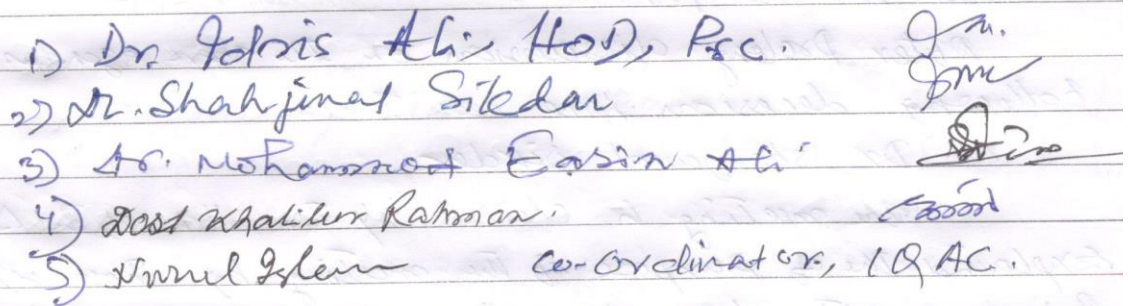 1) Dr. Idris Ali, HOD, P.Sc.
2) Dr. Shahjinat Sikdar
3) Dr. Mohammad Easin Ali
4) Dost Khalilur Rahman.
5) Nurul Islam Co-Ordinator, IQAC.